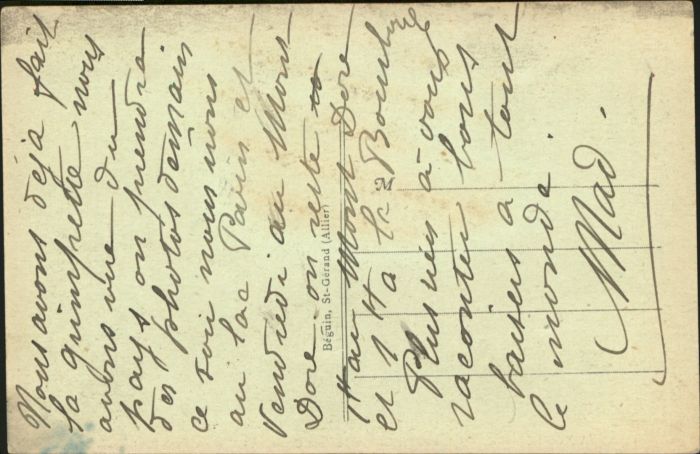 Nous avons déjà fait
la grimpette nous
avons vue du
pays on prendra
des photos demain
ce soir nous nous
au lac Pavin et
Vendredi au Mont
Dore on reste
H au Mont Dore
et 1 H à la Bourboule
Plus rien à vous
raconter bons
baisers a tout
le monde.
Mad.
Béguin, St-Gérand (Allier)
M